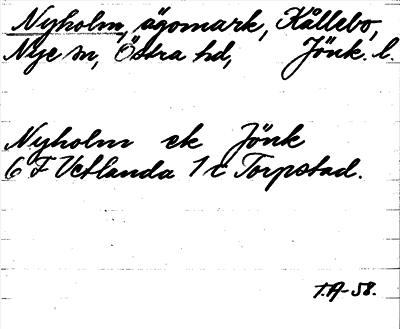 Nyholm, ägomark, Kållebo,
Nye sn, Östra hd, Jönk. l.
Nyholm ek Jönk
6 F Vetlanda 7 c Torpstad.
T.A-58.